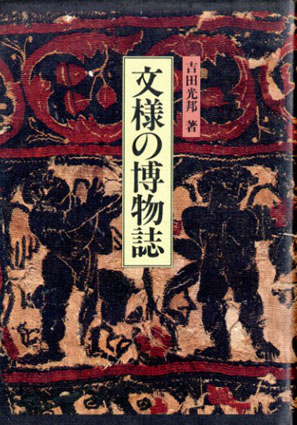 文様の博物誌
吉田光邦 著